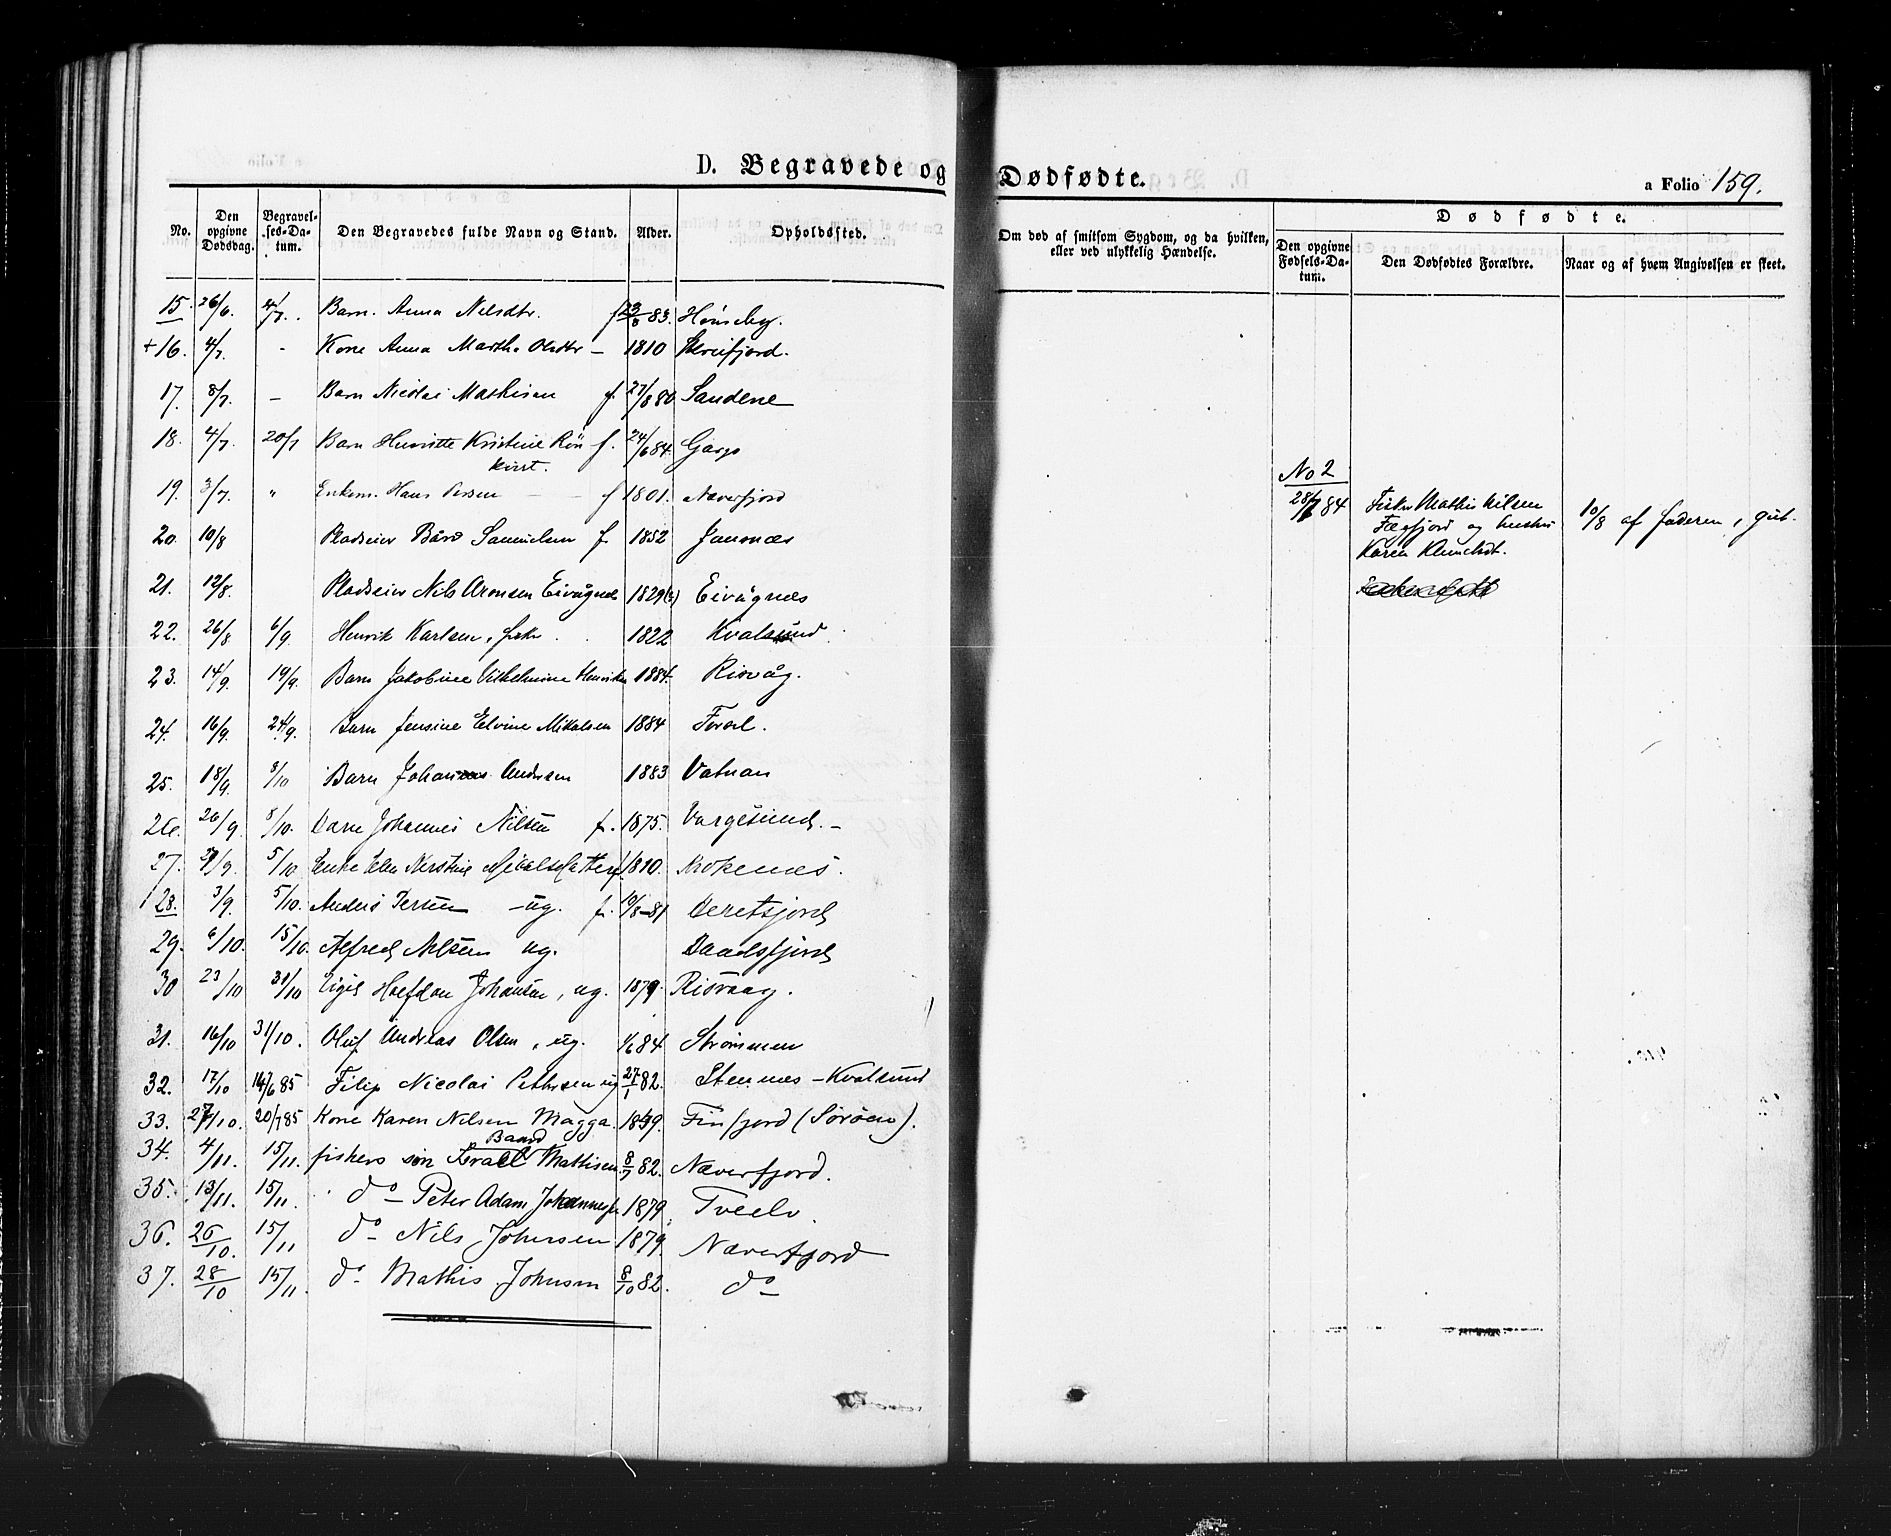 D. Begravede og Dødfødte.
a Folio 159.
No.
Den opgivne Dødsdag.
Begravelses-Datum.
Den Begravedes fulde Navn og Stand.
Alder.
Opholdssted.
Om død af smitsom Sygdom, og da hvilken, eller ved ulykkelig Hændelse.
Dødfødte.
Den opgivne Fødsels-Datum.
Den Dødfødtes Forældre.
Naar og af hvem Angivelsen er skeet.
15 26/6. 4/7. Barn. Anna Nilsdtr. f 83.
+16. 4/7. - Kone Anna Martha Olsdtr - 1810
17. 8/7. - Barn Nicolai Mathisen f. 27/8 80 Sandene
18. 4/7. 20/7 Barn Henritte Kristine f. 24/6 84 Gargo
19. 3/7. " Enkem. Hans Persen - - f 1801. Næverfjord
20. 10/8 Pladseier Bård Samuelsen f. 1852 Jansnæs
21. 12/8. Pladseier Nils Aronsen Eivågnæs 1829(?) Eivågnæs
22. 26/8 6/9. Henrik Karlsen, fisker. 1822 Kvalsund
23. 14/9. 19/9. Barn Jakobine Vilhelmine Henriks 1884. Risvåg.
24. 16/9. 24/9. Barn Jensine Elvine Mikalsen 1884
25. 18/9. 8/10 Barn Johannes Andersen 1883 Vatnan
26. 20/9. 8/10. Barn Johannes Nilsen f. 1875. Vargesund. -
27. 5/10 Enke 1810. Krokenæs.
28. 3/9. 5/10. Anders Iversen - ug. f.
29. 6/10. 15/10. Alfred Nilsen ug. Daadsfjord
30 23/10 31/10 Eigil Halfdan Johansen, ug. 1879 Risvaag.
31. 16/10 31/10. Oluf Andreas Olsen, ug. 1/6 84 Strømmen
32. 17/10 14/6 85 Filip Nicolai Pettersen ug 27/1 82. Stennæs - Kvalsund
33. 27/10. 20/7 85 Kone Karen Nilsen Magga. Finfjord (Sørøen).
34. 4/11. 15/11. fiskers søn Israel Baard Mattisen 8/7 82. Næverfjord.
35. 13/11. 15/11. do - Peter Adam 1879.
36. 26/10. 15/11 do - Nils Johnsen 1879. Næverfjord
37. 28/10 15/11. do - Mathis Johnsen 8/10 82. do -
No 2
28/7 84
Fisker Mathis Nilsen
Fægfjord og hustru
Karen Klemetsdt.
10/8 af faderen, gut.